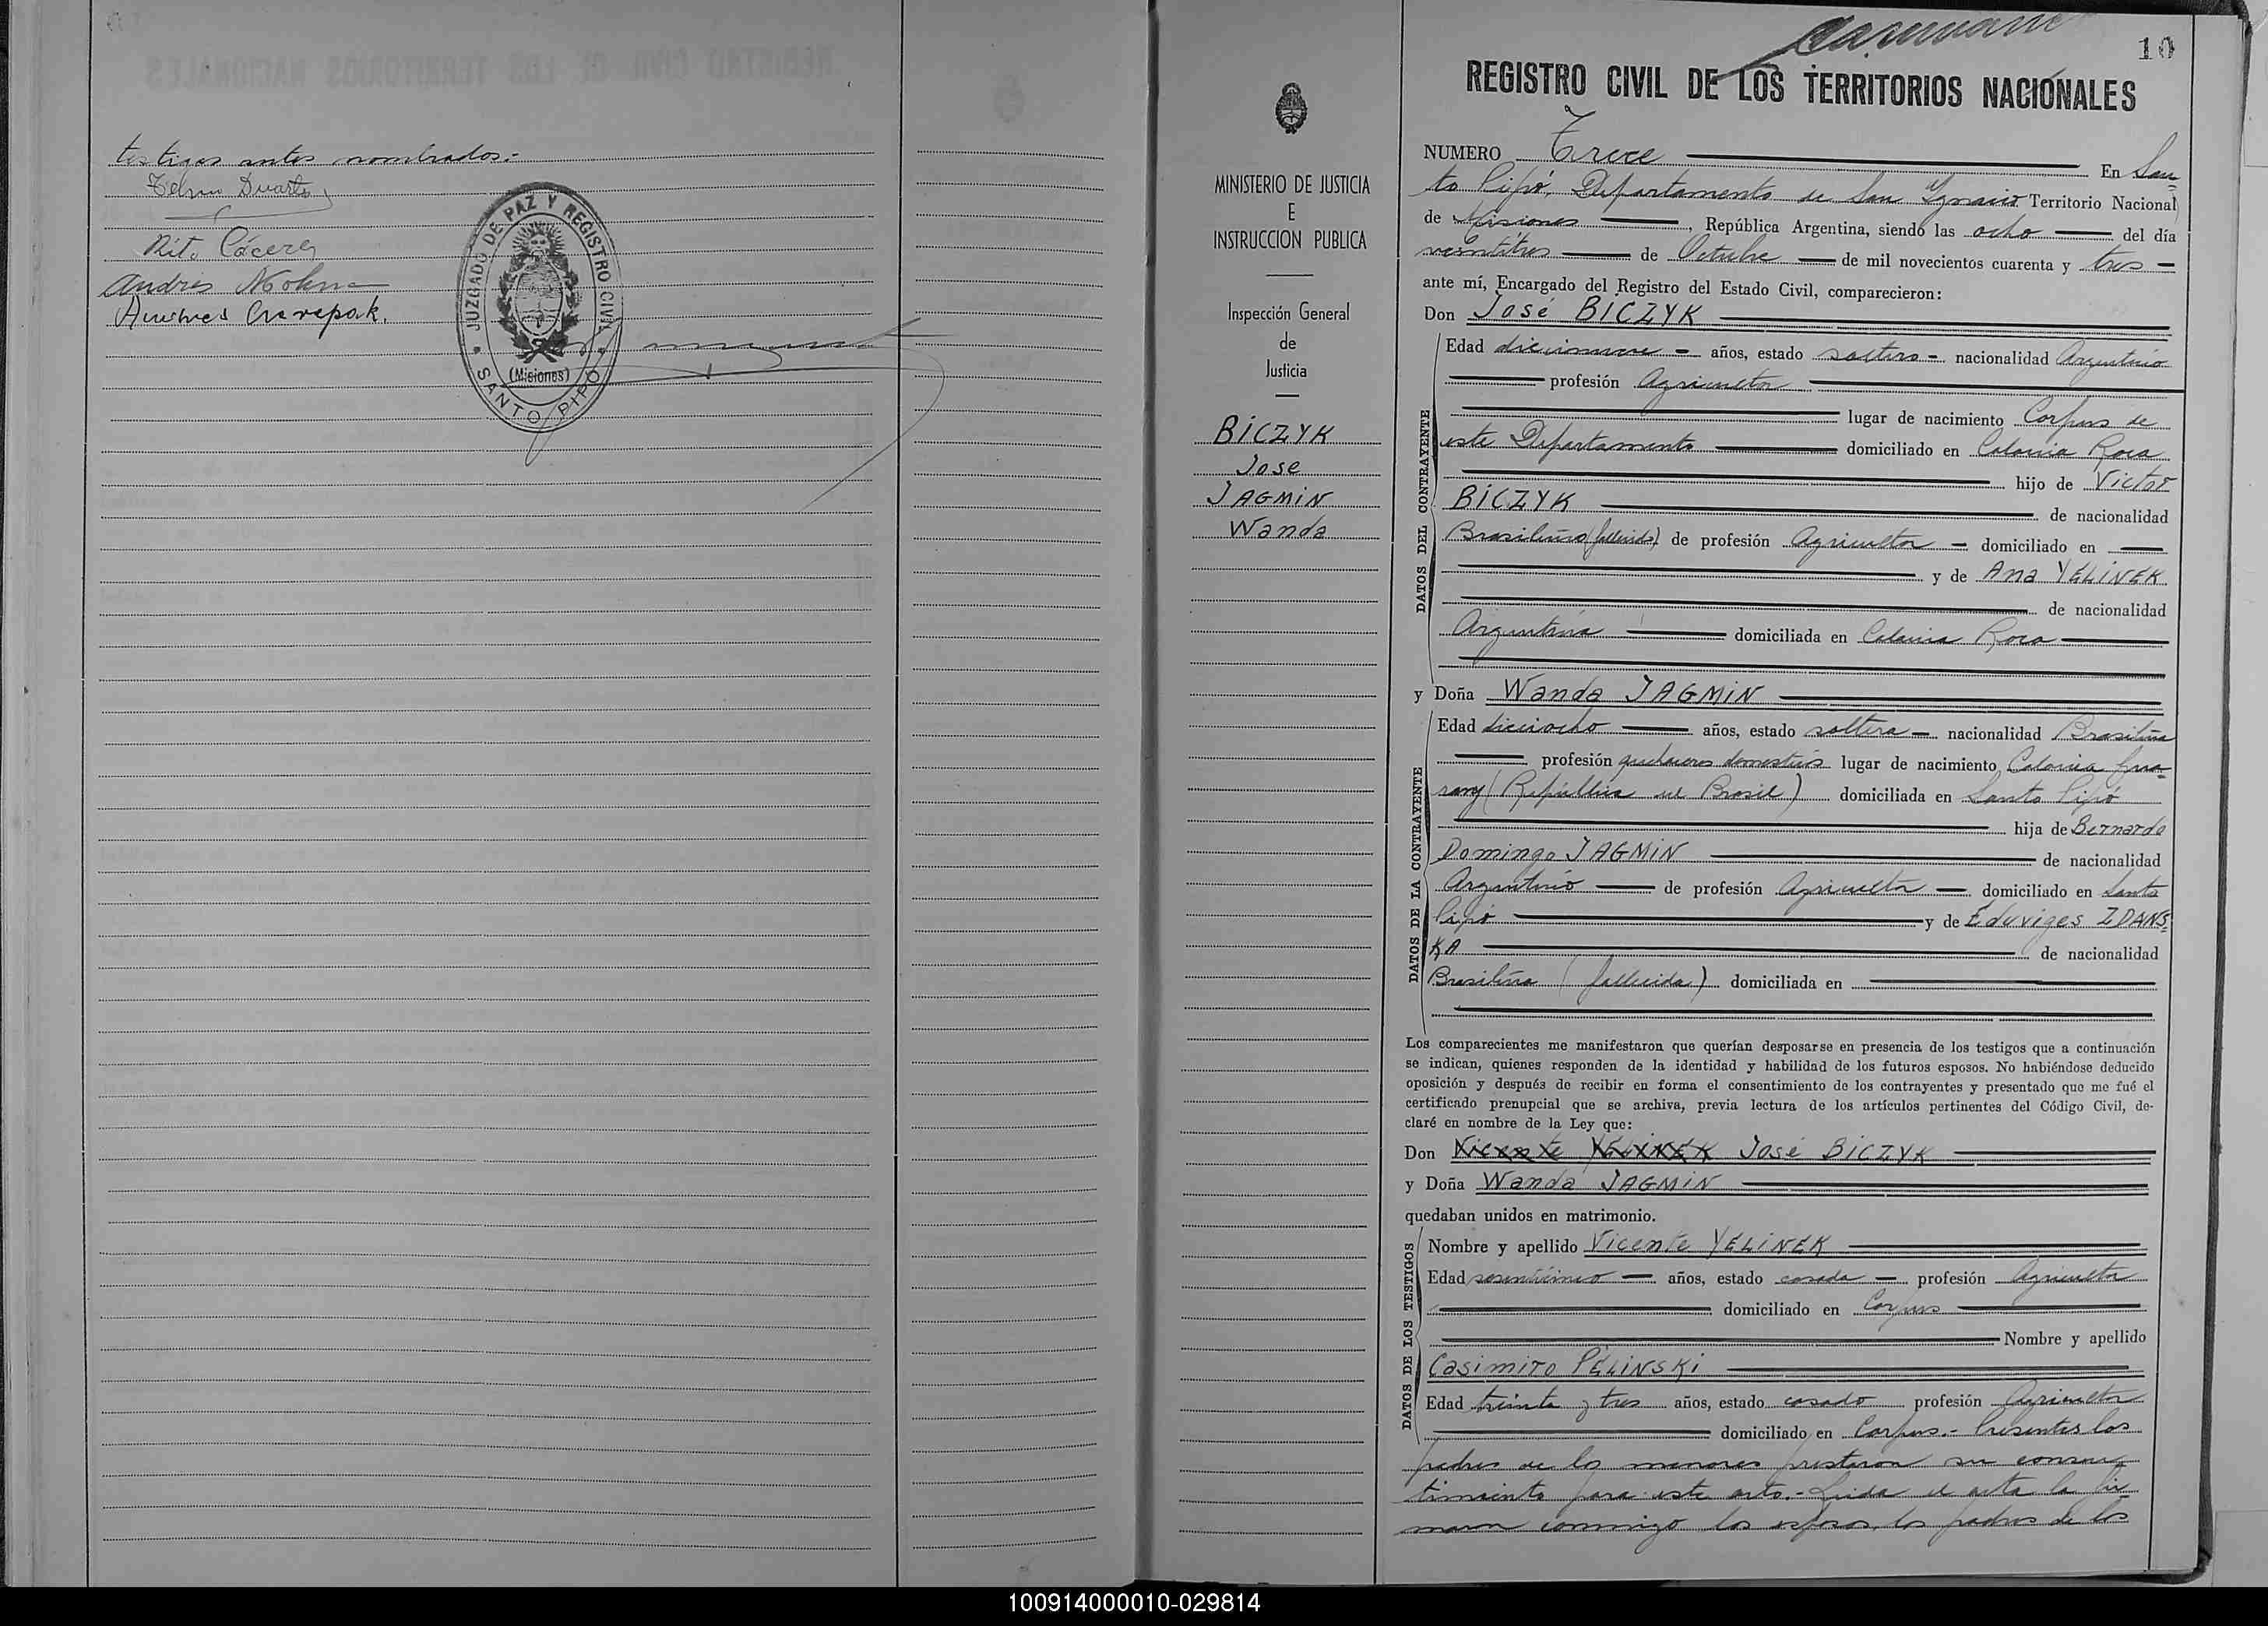 testigos antes nombrados.-
Duarte
Rito Cáceres
Andrés Molina
JUZGADO DE PAZ Y REGISTRO CIVIL
(Misiones)
SANTO PIPO
MINISTERIO DE JUSTICIA
E
INSTRUCCION PUBLICA
Inspección General
de
Justicia
BICZYK
Jose
JAGMIN
Wanda
10
REGISTRO CIVIL DE LOS TERRITORIOS NACIONALES
NUMERO Trece En San-
to Pipó, Departamento de San Ygnacio Territorio Nacional
de Misiones, República Argentina, siendo las ocho del día
veintitres de Octubre de mil novecientos cuarenta y tres
ante mí, Encargado del Registro del Estado Civil, comparecieron:
Don José BICZYK
DATOS DEL CONTRAYENTE
Edad diecinueve años, estado soltero nacionalidad Argentino
profesión Agricultor
lugar de nacimiento Corpus de
este Departamento domiciliado en Colonia Roca
hijo de Victor
BICZYK de nacionalidad
Brasileño (fallecido) de profesión Agricultor domiciliado en
y de Ana YELINEK
de nacionalidad
Argentina domiciliada en Colonia Roca
y Doña Wanda JAGMIN
DATOS DE LA CONTRAYENTE
Edad dieciocho años, estado soltera nacionalidad Brasileña
profesión quehaceres domesticos lugar de nacimiento Colonia Gua-
rany (República del Brasil) domiciliada en Santo Pipó
hija de Bernardo
Domingo JAGMIN de nacionalidad
Argentino de profesión Agricultor domiciliado en Santo
Pipó y de Eduviges ZDANS-
KA de nacionalidad
Brasileña (fallecida) domiciliada en
Los comparecientes me manifestaron que querían desposarse en presencia de los testigos que a continuación
se indican, quienes responden de la identidad y habilidad de los futuros esposos. No habiéndose deducido
oposición y después de recibir en forma el consentimiento de los contrayentes y presentado que me fué el
certificado prenupcial que se archiva, previa lectura de los artículos pertinentes del Código Civil, de-
claré en nombre de la Ley que:
Don Vicente YELINEK José BICZYK
y Doña Wanda JAGMIN
quedaban unidos en matrimonio.
DATOS DE LOS TESTIGOS
Nombre y apellido Vicente YELINEK
Edad años, estado casado profesión Agricultor
domiciliado en Corpus
Nombre y apellido
Casimiro PELINSKI
Edad treinta y tres años, estado casado profesión Agricultor
domiciliado en Corpus.- Presentes los
padres de los menores prestaron su consen-
timiento para este acto.- Leida el acta la fir-
maron conmigo los esposos, los padres de los
100914000010-029814